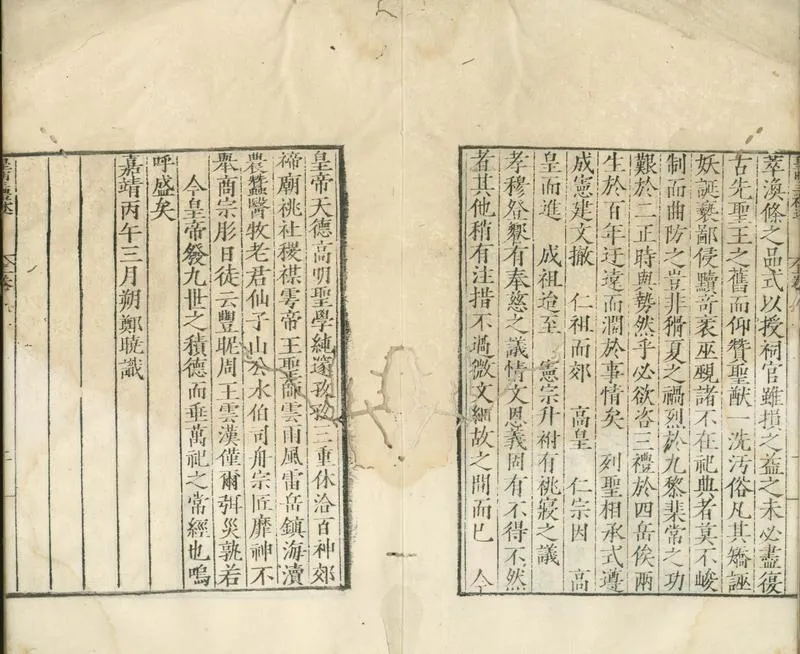 萃渙條之品式以授祠官雖損之益之未必盡復
古先聖王之舊而仰贊聖猷一洗汚俗凡其矯誣
妖誕褻鄙侵黷奇衺巫覡諸不在祀典者莫不峻
制而曲防之豈非猾夏之禍烈於九黎棐常之功
艱於二正時與勢然乎必欲咨三禮於四岳俟兩
生於百年迂遠而濶於事情矣 列聖相承式遵
成憲建文撤 仁祖而郊 高皇 仁宗因 高
皇而進 成祖迨至 憲宗升祔有祧寢之議
孝穆登饗有奉慈之議情文恩義固有不得不然
者其他稍有注措不過微文細故之間而已 今
皇帝天德高明聖學純邃孜孜三重休洽百神郊
禘廟祧社稷禖雩帝王聖師雲雨風雷岳鎮海瀆
農蠶醫牧老君仙子山公水伯司舟宗匠靡神不
舉商宗肜日徒云豐昵周王雲漢僅爾弭災孰若
今皇帝發九世之積德而垂萬祀之常經也嗚
呼盛矣
嘉靖丙午三月朔鄭曉識